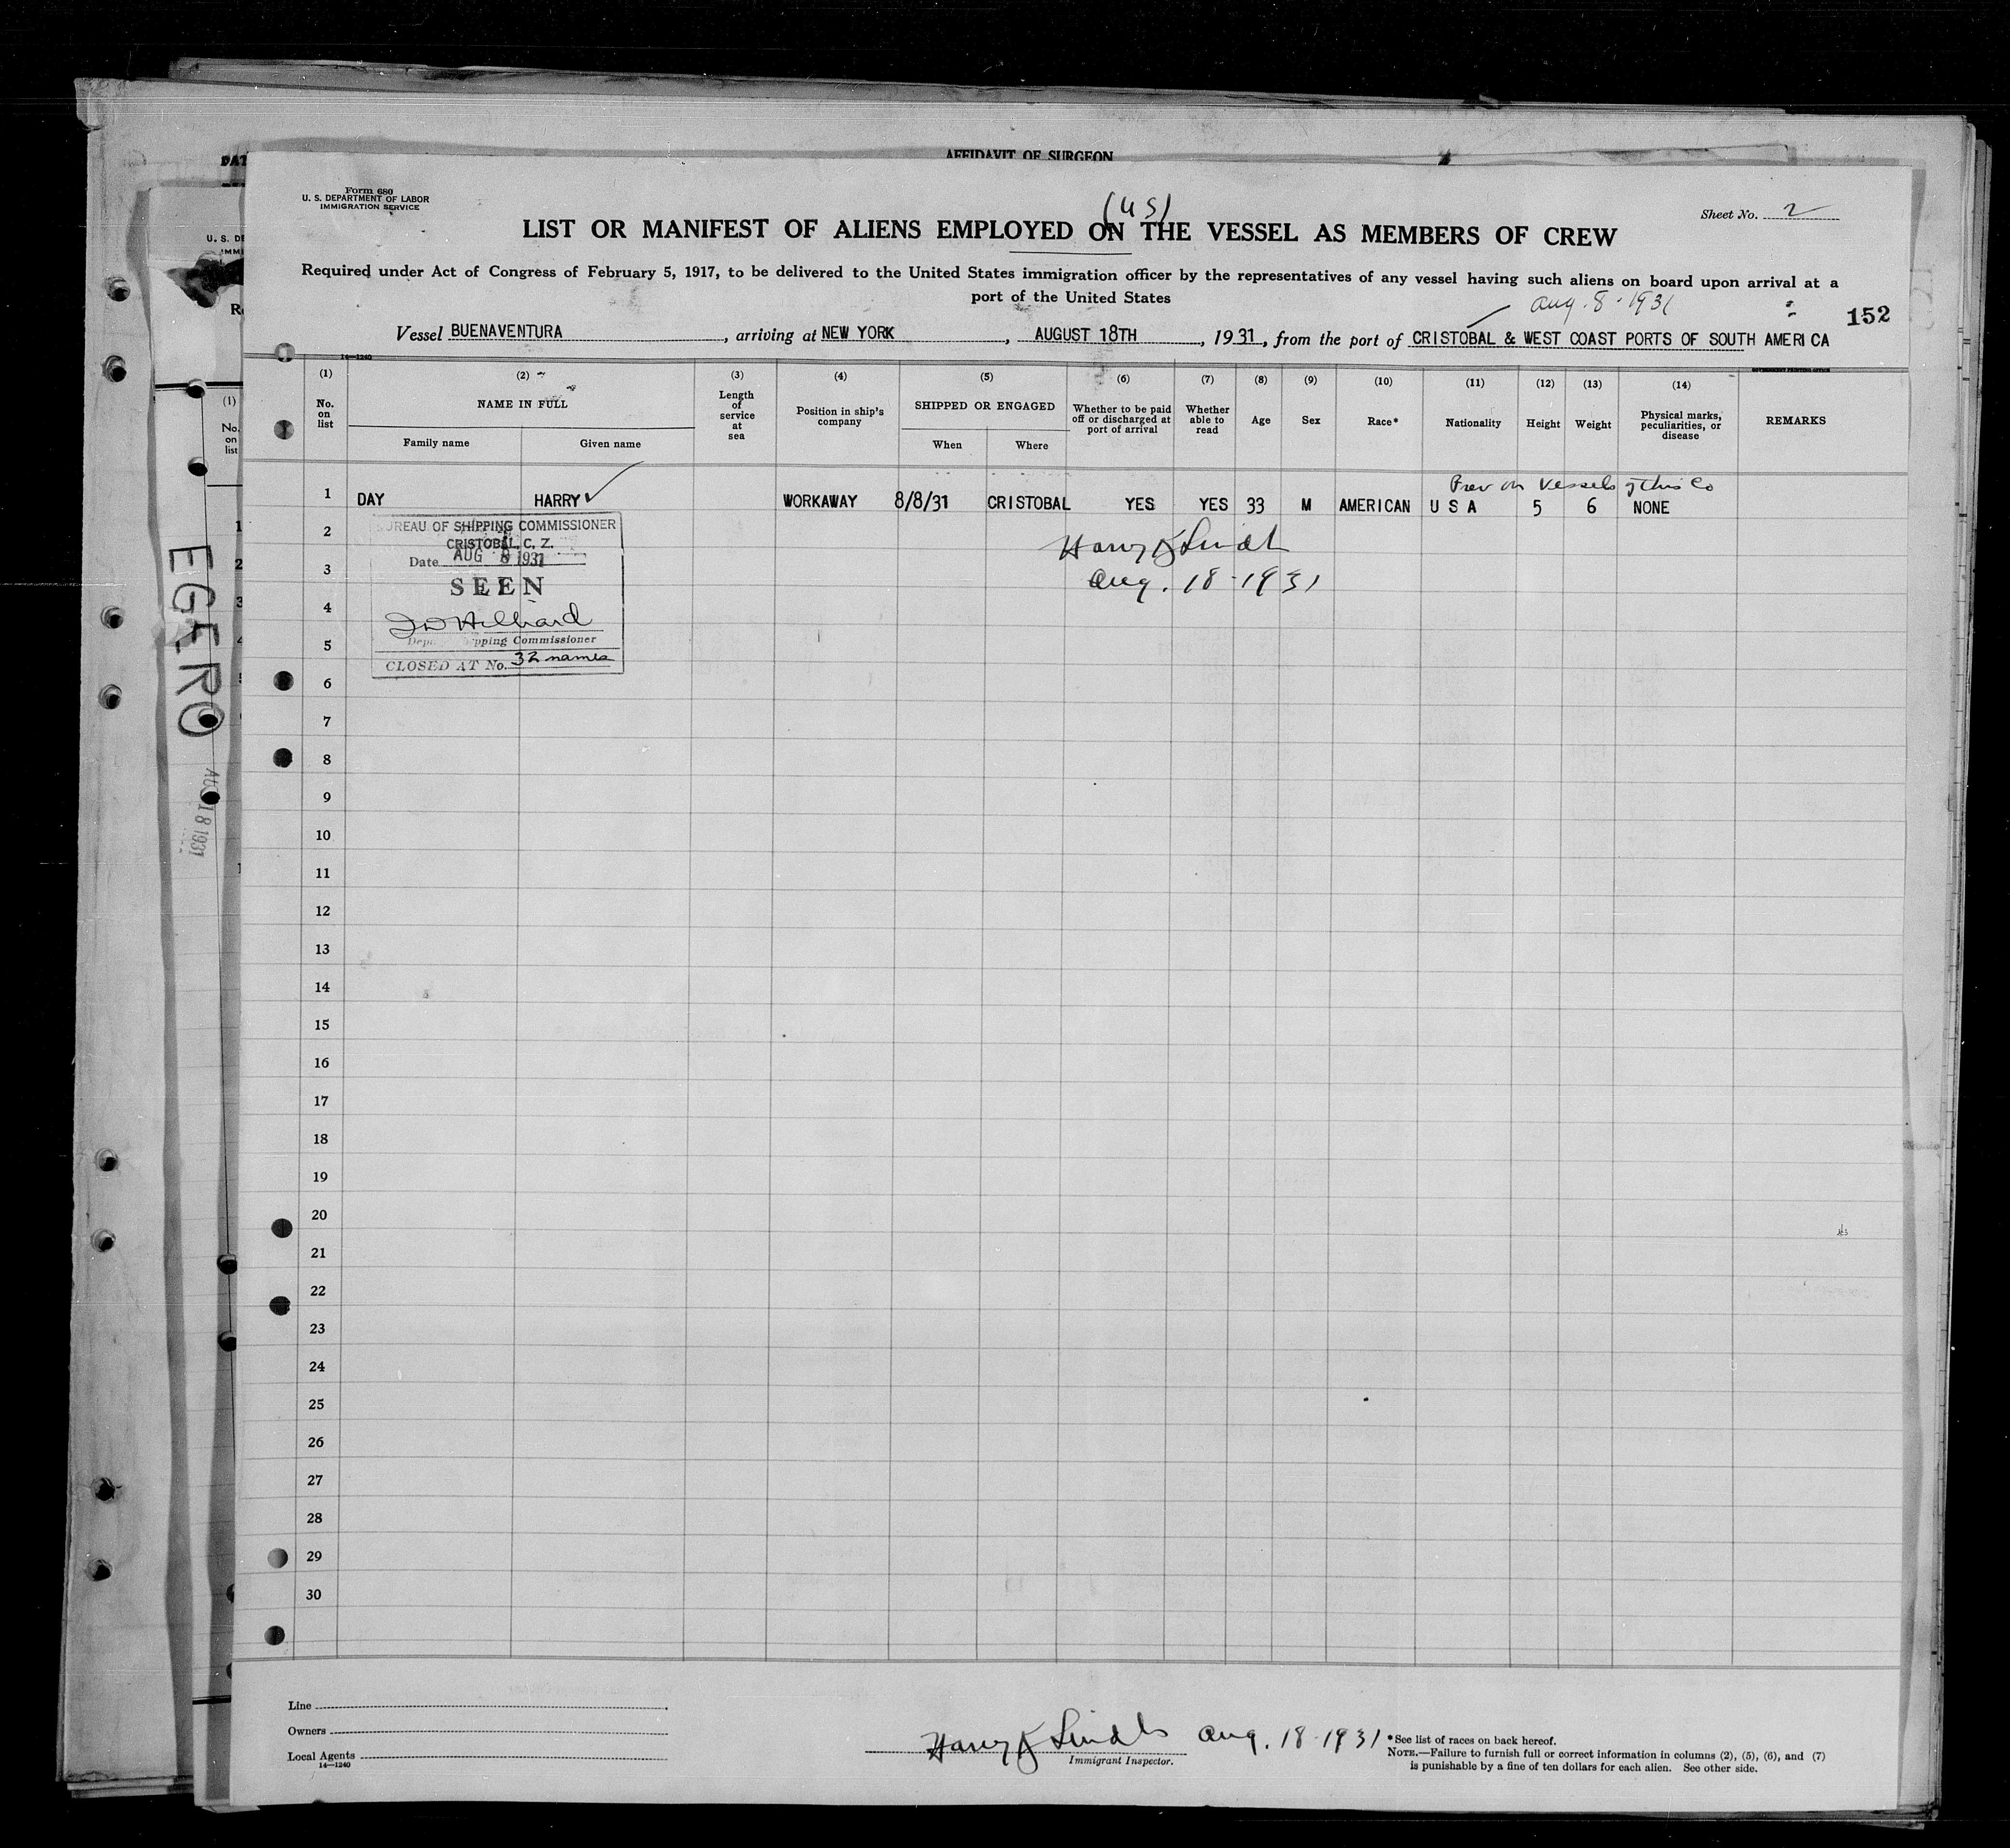 AFFIDAVIT OF SURGEON
DAT
U. S. DE
IMMI
(1)
No.
on
list
EGERO
AUG 18 1931
Form 680
U. S. DEPARTMENT OF LABOR
IMMIGRATION SERVICE
Sheet No. 2
(US)
LIST OR MANIFEST OF ALIENS EMPLOYED ON THE VESSEL AS MEMBERS OF CREW
Required under Act of Congress of February 5, 1917, to be delivered to the United States immigration officer by the representatives of any vessel having such aliens on board upon arrival at a
port of the United States
Aug. 8-1931
152
Vessel BUENAVENTURA, arriving at NEW YORK, AUGUST 18TH, 1931, from the port of CRISTOBAL & WEST COAST PORTS OF SOUTH AMERICA
14—1240
GOVERNMENT PRINTING OFFICE
(1) No. on list
(2) NAME IN FULL
Family name Given name
(3) Length of service at sea
(4) Position in ship's company
(5) SHIPPED OR ENGAGED
When Where
(6) Whether to be paid off or discharged at port of arrival
(7) Whether able to read
(8) Age
(9) Sex
(10) Race*
(11) Nationality
(12) Height
(13) Weight
(14) Physical marks, peculiarities, or disease
REMARKS
Prev on Vessels of this Co
1 DAY HARRY ✓ WORKAWAY 8/8/31 CRISTOBAL YES YES 33 M AMERICAN U S A 5 6 NONE
BUREAU OF SHIPPING COMMISSIONER
CRISTOBAL, C. Z.
Date AUG 8 1931
SEEN
Hilliard
Shipping Commissioner
CLOSED AT No. 32 names
Harry
Aug. 18-1931
2
3
4
5
6
7
8
9
10
11
12
13
14
15
16
17
18
19
20
21
22
23
24
25
26
27
28
29
30
Line
Owners
Local Agents
14—1240
Harry Aug. 18-1931
Immigrant Inspector.
*See list of races on back hereof.
NOTE.—Failure to furnish full or correct information in columns (2), (5), (6), and (7)
is punishable by a fine of ten dollars for each alien. See other side.